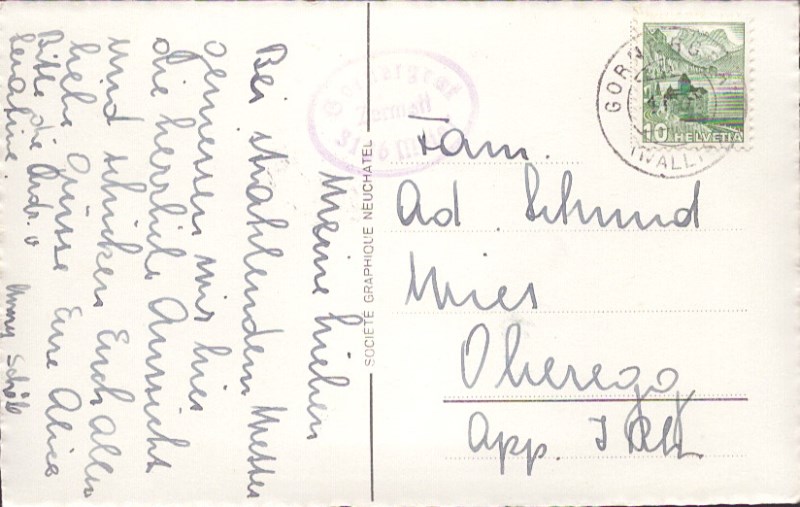 Meine Lieben
Bei strahlendem Wetter
geniessen wir hier
die herrliche Aussicht
und schicken Euch allen
liebe Grüsse Eure Alice
Bitte die Adr. v
SOCIÉTÉ GRAPHIQUE NEUCHATEL
Zermatt
3136 m
10 HELVETIA
(WALLIS)
Fam.
Ad. Schmid
Mies
Oberegg
App. I. Rh.